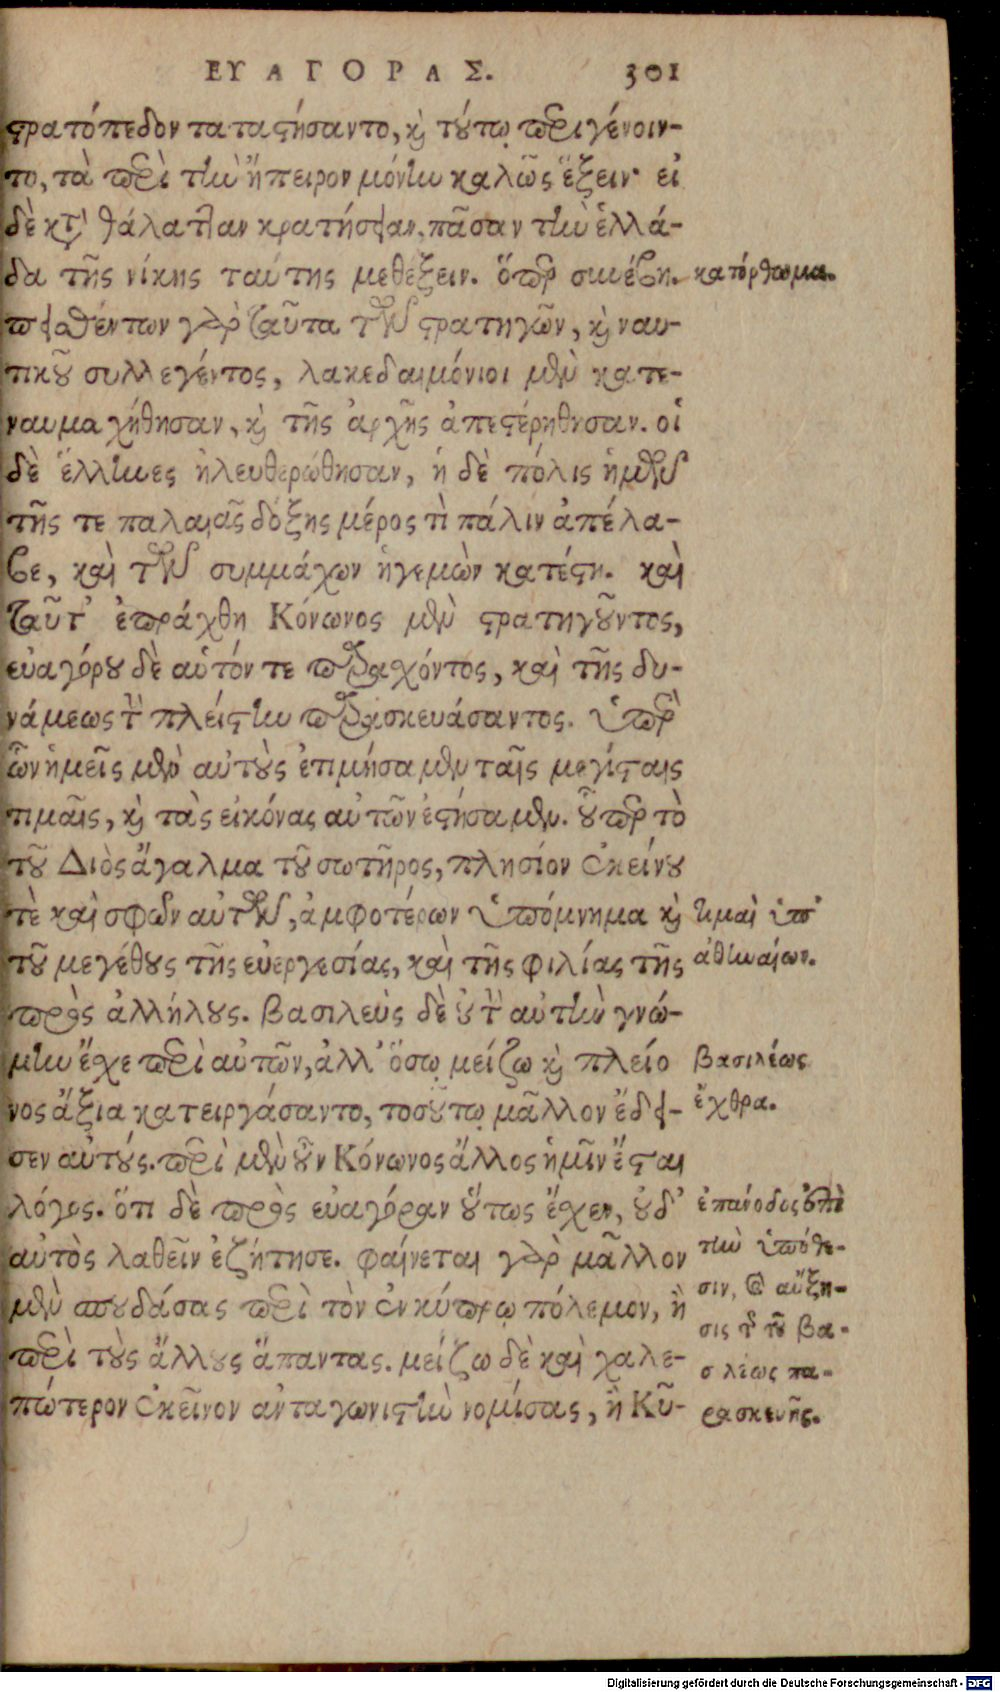 ΕΥΑΓΟΡΑΣ. 301
στρατόπεδον τατατήσαντο, καὶ τούτῳ περιγένοιν-
το, τὰ περὶ τὴν ἤπειρον μόνην καλῶς ἕξειν· εἰ
δὲ κατὰ θάλατταν κρατήσειαν, πᾶσαν τὴν ἑλλά-
δα τῆς νίκης ταύτης μεθέξειν. ὅπερ συνέβη.
κατόρθωμα.
πεισθέντων γὰρ ταῦτα τῶν στρατηγῶν, καὶ ναυ-
τικοῦ συλλεγέντος, λακεδαιμόνιοι μὲν κατε-
ναυμαχήθησαν, καὶ τῆς ἀρχῆς ἀπεστέρηθησαν. οἱ
δὲ ἕλληνες ἠλευθερώθησαν, ἡ δὲ πόλις ἡμῶν
τῆς τε παλαιᾶς δόξης μέρος τὶ πάλιν ἀπέλα-
βε, καὶ τῶν συμμάχων ἡγεμὼν κατέστη. καὶ
ταῦτ' ἐπράχθη Κόνωνος μὲν στρατηγοῦντος,
εὐαγόρου δὲ αὑτόν τε παραχόντος, καὶ τῆς δυ-
νάμεως τὴν πλείστην παρασκευάσαντος. ὑπὲρ
ὧν ἡμεῖς μὲν αὐτοὺς ἐτιμήσαμεν ταῖς μεγίσταις
τιμαῖς, καὶ τὰς εἰκόνας αὐτῶν ἐστήσαμεν. οὗπερ τὸ
τοῦ Διὸς ἄγαλμα τοῦ σωτῆρος, πλησίον ἐκείνου
τὲ καὶ σφῶν αὐτῶν, ἀμφοτέρων ὑπόμνημα καὶ
τιμαὶ ὑπ'
τοῦ μεγέθους τῆς εὐεργεσίας, καὶ τῆς φιλίας τῆς
ἀθηναίων.
πρὸς ἀλλήλους. βασιλεὺς δὲ οὐ τὴν αὐτὴν γνώ-
μην ἔχε περὶ αὐτῶν, ἀλλ' ὅσῳ μείζω καὶ πλείο
βασιλέως
νος ἄξια κατειργάσαντο, τοσούτῳ μᾶλλον ἔδει-
ἔχθρα.
σεν αὐτούς. περὶ μὲν οὖν Κόνωνος ἄλλος ἡμῖν ἔσται
λόγος. ὅτι δὲ πρὸς εὐαγόραν οὕτως ἔχεν, οὐδ'
ἐπάνοδος ἐπὶ
αὐτὸς λαθεῖν ἐζήτησε. φαίνεται γὰρ μᾶλλον
τὴν ὑπόθε-
μὲν σπουδάσας περὶ τὸν ἐν κύπρῳ πόλεμον, ἢ
σιν, καὶ αὔξη-
περὶ τοὺς ἄλλους ἅπαντας. μείζω δὲ καὶ χαλε-
σις τῆς τοῦ βα-
σλέως πα-
πώτερον ἐκεῖνον ἀνταγωνιστὴν νομίσας, ἢ Κῦ-
ρασκευῆς.
Digitalisierung gefördert durch die Deutsche Forschungsgemeinschaft - DFG